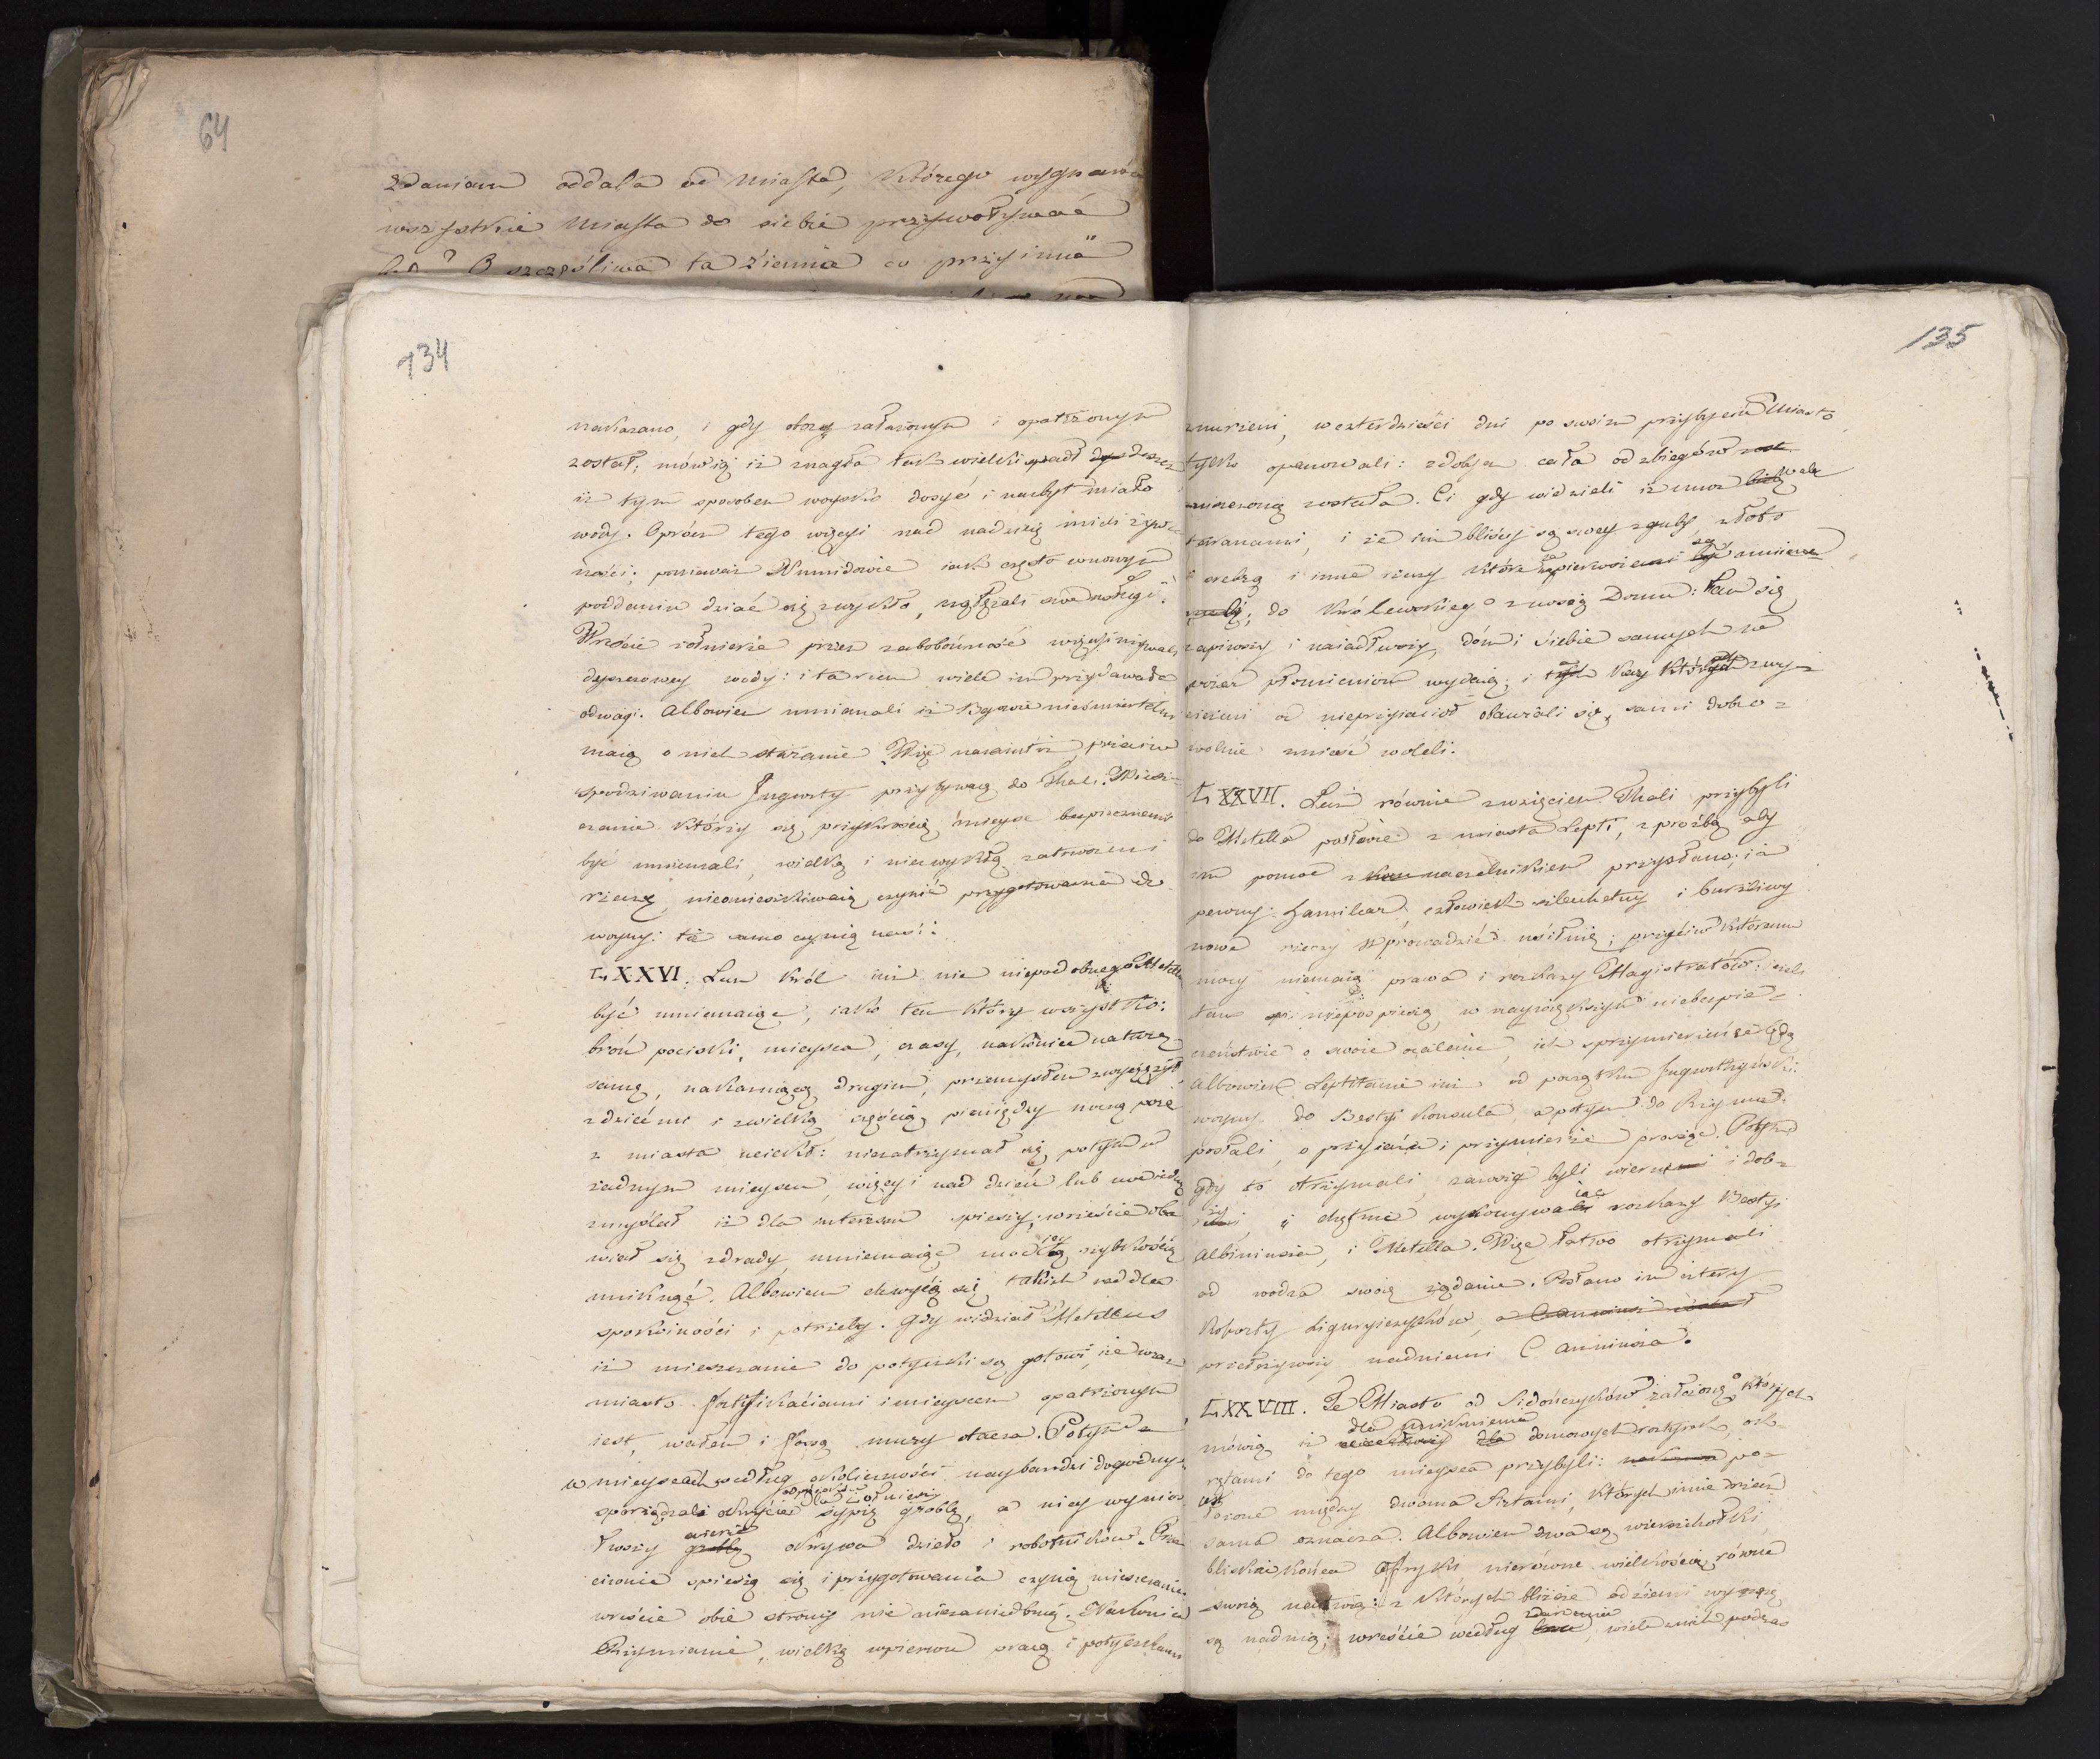 64
zdaniem oddala od Miasta, którego wygnańca
wszystkie Miasta do siebie przyzwoływać
O szczęśliwa ta ziemia co przyimie
134
nakazano, i gdy obozy założonym i opatrzonym
został; mówią iż znagła tak wielki spadł deszcz
iż tym sposobem woysko dosyć i nazbyt miało
wody. Oprócz tego więcej nad nadzieję mieli żywności
ności; ponieważ Numidowie iak często wnowym
poddaniu dziać się zwykło, wytężali swe usługi.
Wreście żołnierze przez zabobonność więcej używali
dżdżowey wody: i ta rzecz wiele im przydawała
odwagi. Albowiem mniemali iż Bogowie nieśmiertelni
maią o nich staranie. Więc nazaiutrz przeciw
spodziewaniu Jugurty przybywaią do Thali. Miesz-
czanie którzy się przykrością mieysc bezpiecznemi
być mniemali, wielką i niezwykłą zatrwożeni
rzeczą, nieomieszkiwaią czynić przygotowania do
woyny: też samo czynią nasi:
LXXVI. Lecz Król iuż nic niepodobnego Metellu
być mniemaiąc, iako ten który wszystko:
broń pociski, mieysca, czasy, nakoniec naturę
samą, nakazuiącą drugim, przemysłem zwyciężył
z dziećmi i z wielką częścią pieniędzy nocną porą
z miasta uciekł: niezatrzymał się potym w
żadnym mieyscu, więcey nad dzień lub noc iedną
zmyślał iż dla interessu spieszy; wreście oba
wiał się zdrady, mniemaiąc módz ią szybkością
uniknąć. Albowiem chwyćią się takich rad dla
spokoiności i potrzeby. Gdy widział Metellus
iż mieszczanie do potyczki są gotowi, iż wraz
miasto fortyfikaciami i mieyscem opatrzonym
iest, wałem i fossą mury otacza. Potym
w mieyscach według okoliczności naybardzi dogodnych
sporządzali okrycia sypią groblę, a nięy wynios-
dla żołnierzy
łwszy groblę okrywa dzieło i robotników. Prze
wierze
ciwnie spieszą się i przygotowania czynią mieszczanie
wreście obie strony nic niezaniedbuią. Nakoniec
Rzymianie, wielką wpierwou pracą i potyczkami
135
zmurzeni, w czterdzieści dni po swoim przybyciu Miasto
tylko opanowali: zdobycz cała od zbiegów
zniszczoną została. Ci gdy widzieli iż mur
taranami, i że im bliscy są swey zguby, złoto
srebro i inne rzeczy które za pierwsze są
do Królewskiego znoszą Domu: tam się
zapiwszy i naiadłwszy, dóm i siebie samych na
pożar płomieniom wydaią; i kary których zwy-
ciężeni od nieprzyiaciół obawiali się, sami dobro-
wolnie znieść woleli.
LXXVII. Lecz równie zwzięciem Thali przybyli
do Metella posłowie z miasta Lepti, z prośbą aby
im pomoc z naczelnikiem przysłano; iż
pewny Hamilkar, człowiek szlachetny i burzliwy
nowe rzeczy wprowadzić usiłuie; przeciw któremu
mocy niemaią prawa i rozkazy Magistratów: ieżeli
tam niepospieszą, w naywiększym niebezpie-
czeństwie o swoie ocalenie, ich sprzymierzeńce będą
Albowiem Leptitanie iuż od początku Jugurtyńskiey
woyny do Bestyi Konsula, a potym do Rzymu
posłali, o przyiaźń i przymierze prosząc. Potym
gdy to otrzymali, zawsze byli wierni i dob-
rzy, i chętnie wykonywali rozkazy Bestyi
Albiniusza, i Metella. Więc łatwo otrzymali
od wodza swoie żądanie. Posłano im cztery
Kohorty Liguryiczyków, a
przełożywszy nadniemi C. Anniusza.
LXXVIII. Te Miasto od Sidończyków założone, których
dla uniknienia
mówią iż domowych roztyrek, ok-
rętami do tego mieysca przybyli: po-
łożone między dwoma Syrtami, których imie rzecz
sama oznacza. Albowiem dwa są wierzchołki
bliskie końca Afryki, nierówne wielkością, równe
swoią naturą: z których bliższe od ziemi wyższe
zdarzenia
są nadnią; wreście według wiele nich podczas